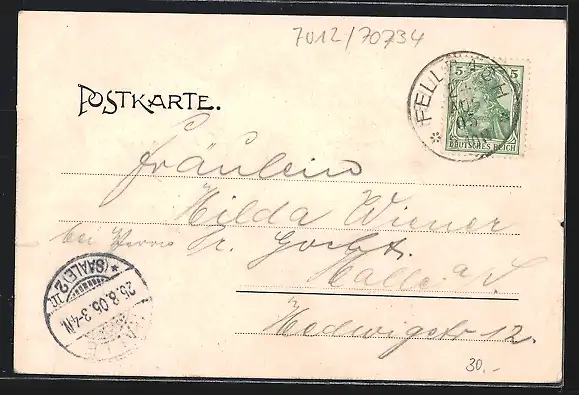 7012/70734
POSTKARTE.
FELLBACH
5 5
DEUTSCHES REICH
Fräulein
Hilda Wiener
bei Herrn Dr.
Halle a. S.
Hedwigstr 12.
* (SAALE) 2
25.8.05. 3-4N.
HALLE
30.-